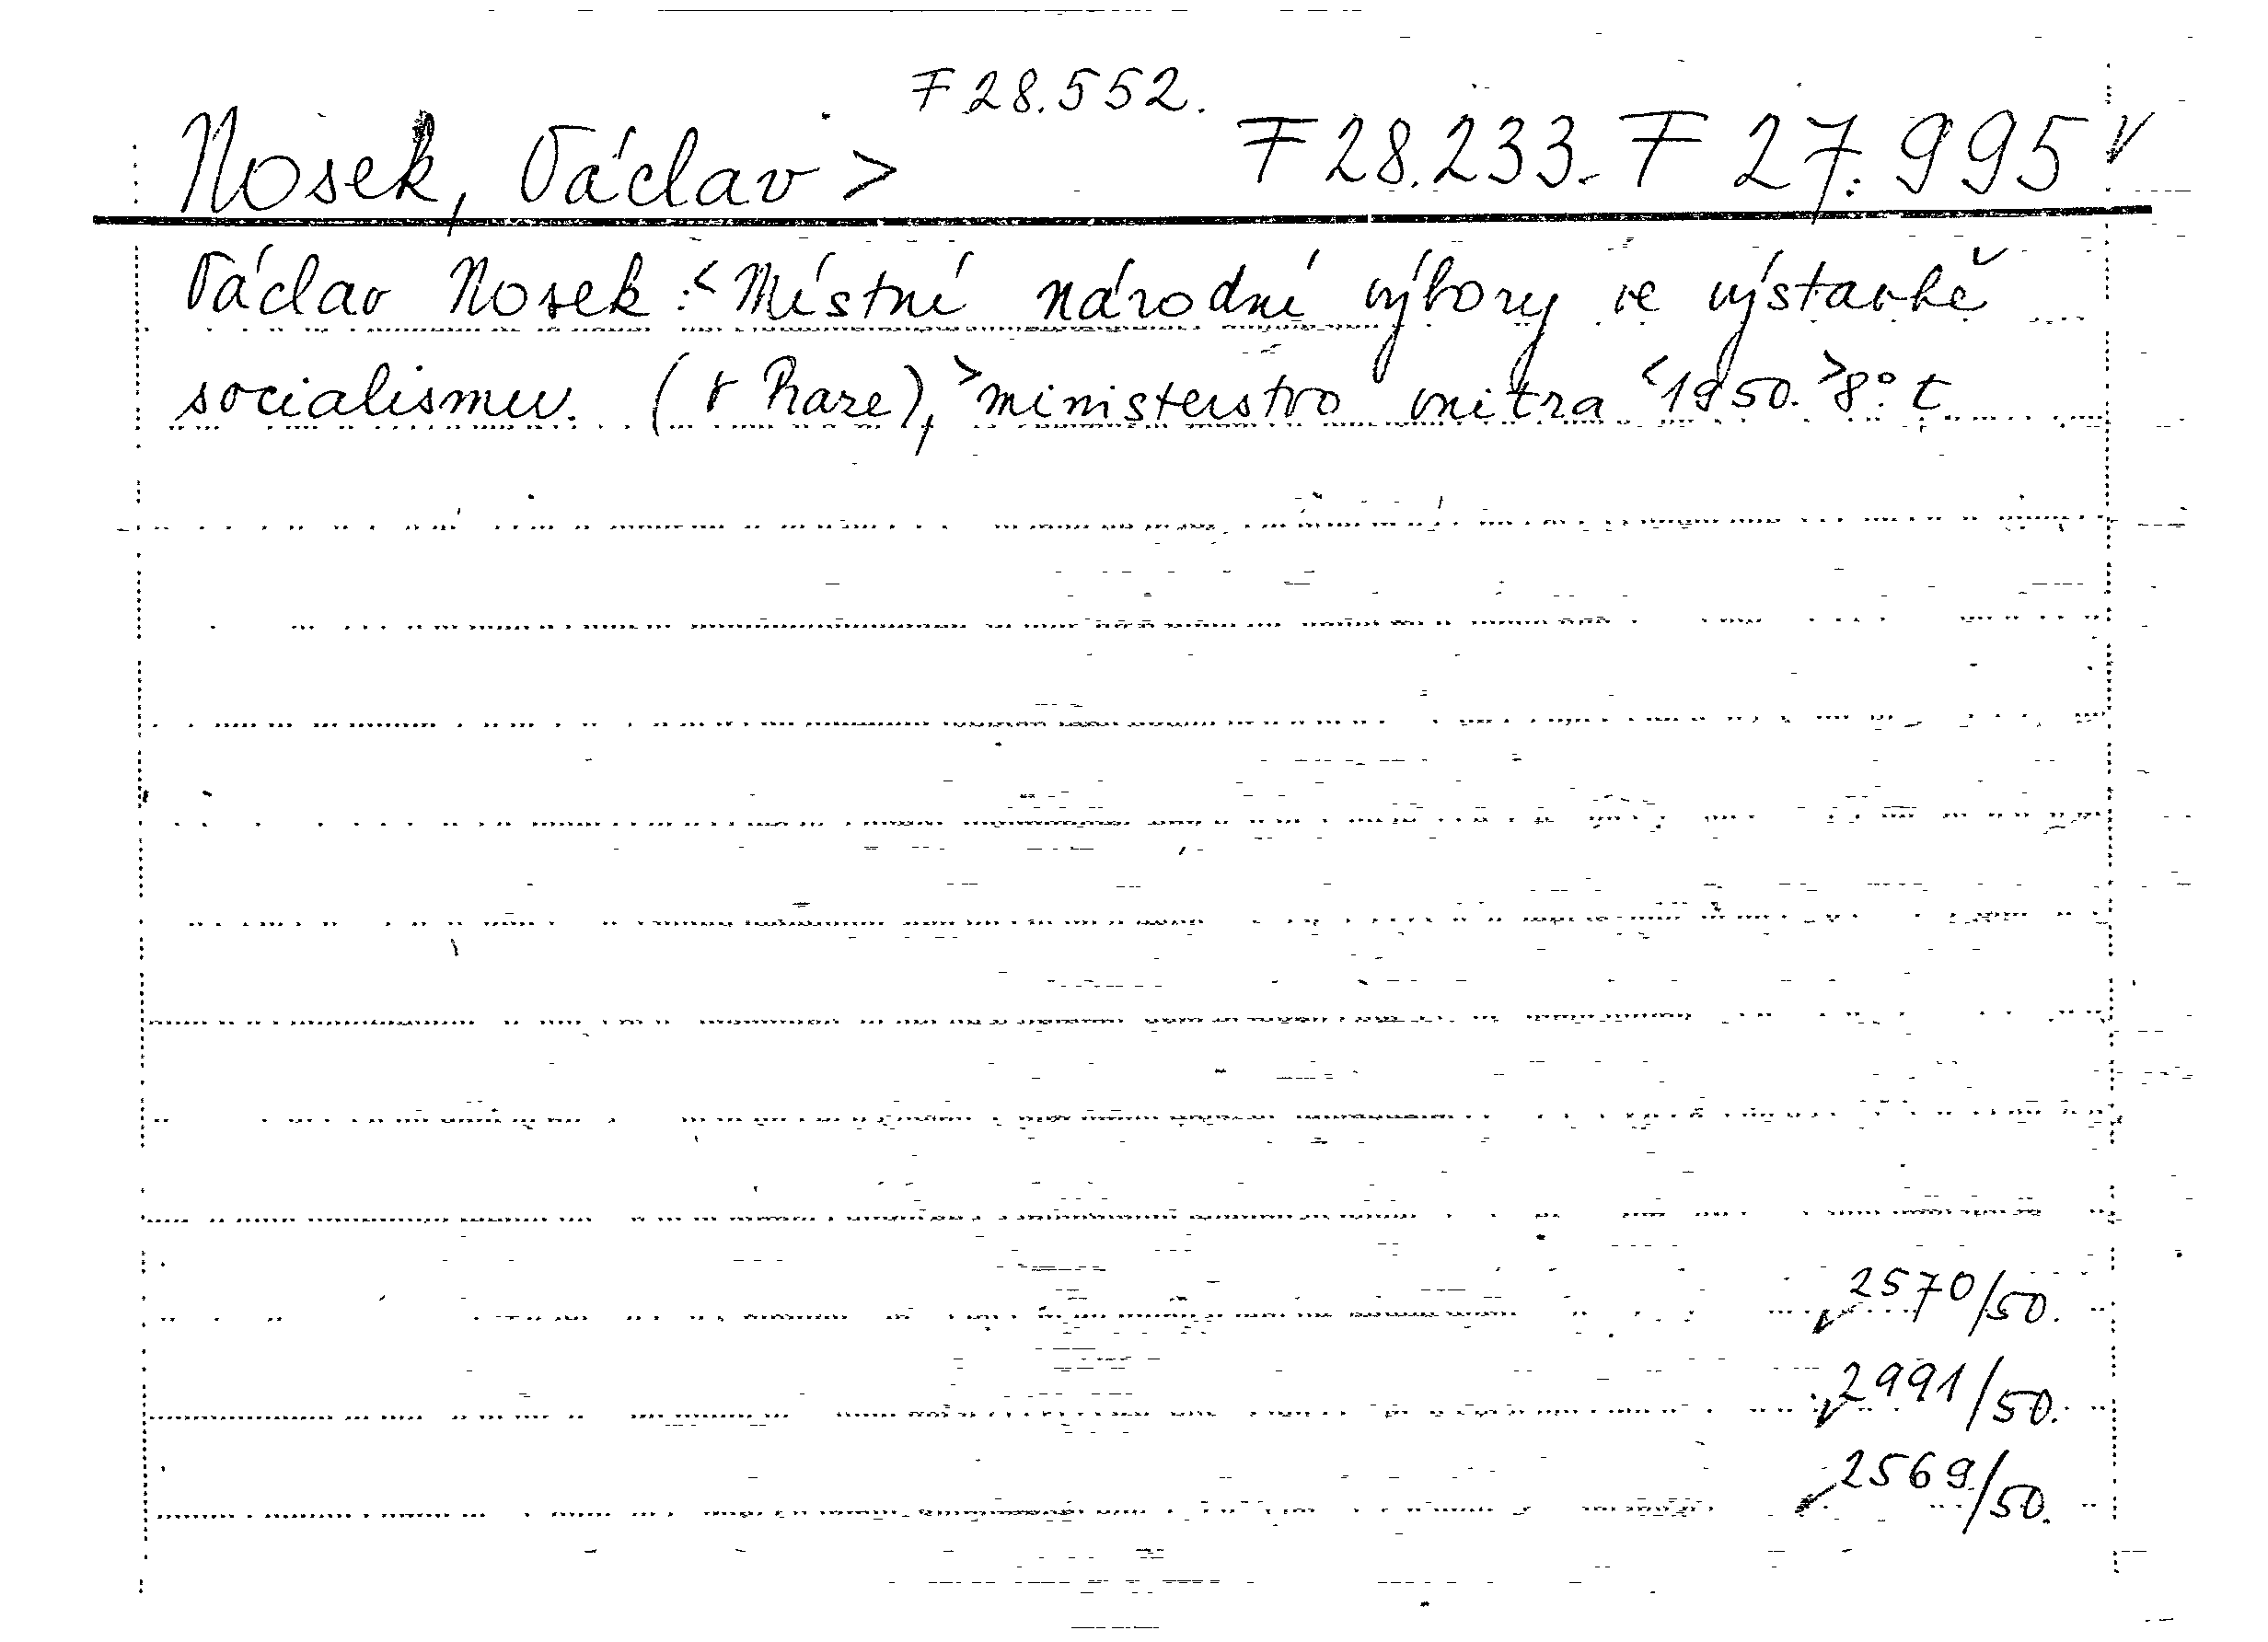 F 28.552.
Nosek, Václav > F 28.233. F 27.995 √
Václav Nosek :<Místní národní výbory ve výstavbě
socialismu. (V Praze),> ministerstvo vnitra <1950.> 8° t.
√2570/50.
√2991/50.
√2569/50.